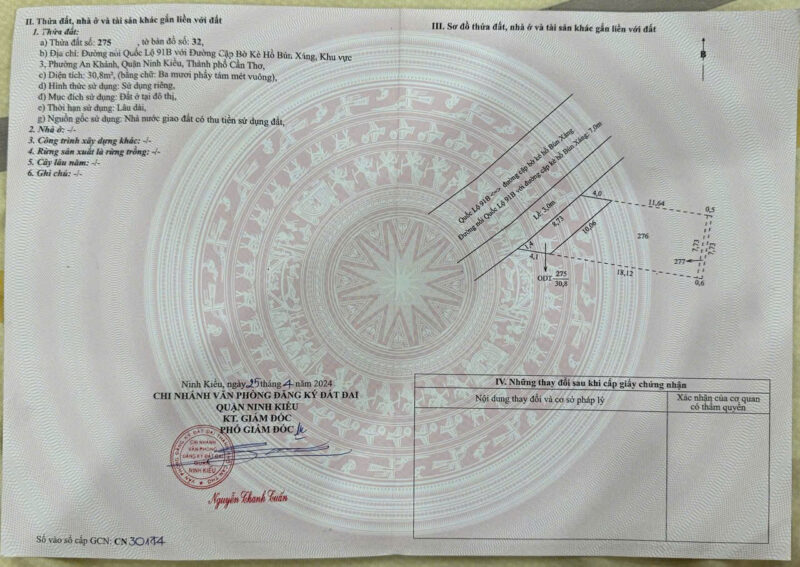 II. Thửa đất, nhà ở và tài sản khác gắn liền với đất
1. Thửa đất:
a) Thửa đất số: 275 , tờ bản đồ số: 32,
b) Địa chỉ: Đường nối Quốc Lộ 91B với Đường Cặp Bờ Kè Hồ Bún Xáng, Khu vực
3, Phường An Khánh, Quận Ninh Kiều, Thành phố Cần Thơ,
c) Diện tích: 30,8m², (bằng chữ: Ba mươi phẩy tám mét vuông),
d) Hình thức sử dụng: Sử dụng riêng,
đ) Mục đích sử dụng: Đất ở tại đô thị,
e) Thời hạn sử dụng: Lâu dài,
g) Nguồn gốc sử dụng: Nhà nước giao đất có thu tiền sử dụng đất,
2. Nhà ở: -/-
3. Công trình xây dựng khác: -/-
4. Rừng sản xuất là rừng trồng: -/-
5. Cây lâu năm: -/-
6. Ghi chú: -/-
Ninh Kiều, ngày 25 tháng 4 năm 2024
CHI NHÁNH VĂN PHÒNG ĐĂNG KÝ ĐẤT ĐAI
QUẬN NINH KIỀU
KT. GIÁM ĐỐC
PHÓ GIÁM ĐỐC
CHI NHÁNH
VĂN PHÒNG
ĐĂNG KÝ ĐẤT ĐAI
QUẬN
NINH KIỀU
Nguyễn Thanh Tuấn
Số vào sổ cấp GCN: CN 30144
III. Sơ đồ thửa đất, nhà ở và tài sản khác gắn liền với đất
B
Quốc Lộ 91B <=> đường cặp bờ kè hồ Bún Xáng
Đường nối Quốc Lộ 91B với đường cặp kè hồ Bún Xáng: 7,0m
Lề 3,0m
4,0
11,64
0,5
8,73
10,06
276
7,73
7,73
277
1,4
4,1
18,12
0,6
ODT 275
30,8
IV. Những thay đổi sau khi cấp giấy chứng nhận
Nội dung thay đổi và cơ sở pháp lý
Xác nhận của cơ quan
có thẩm quyền